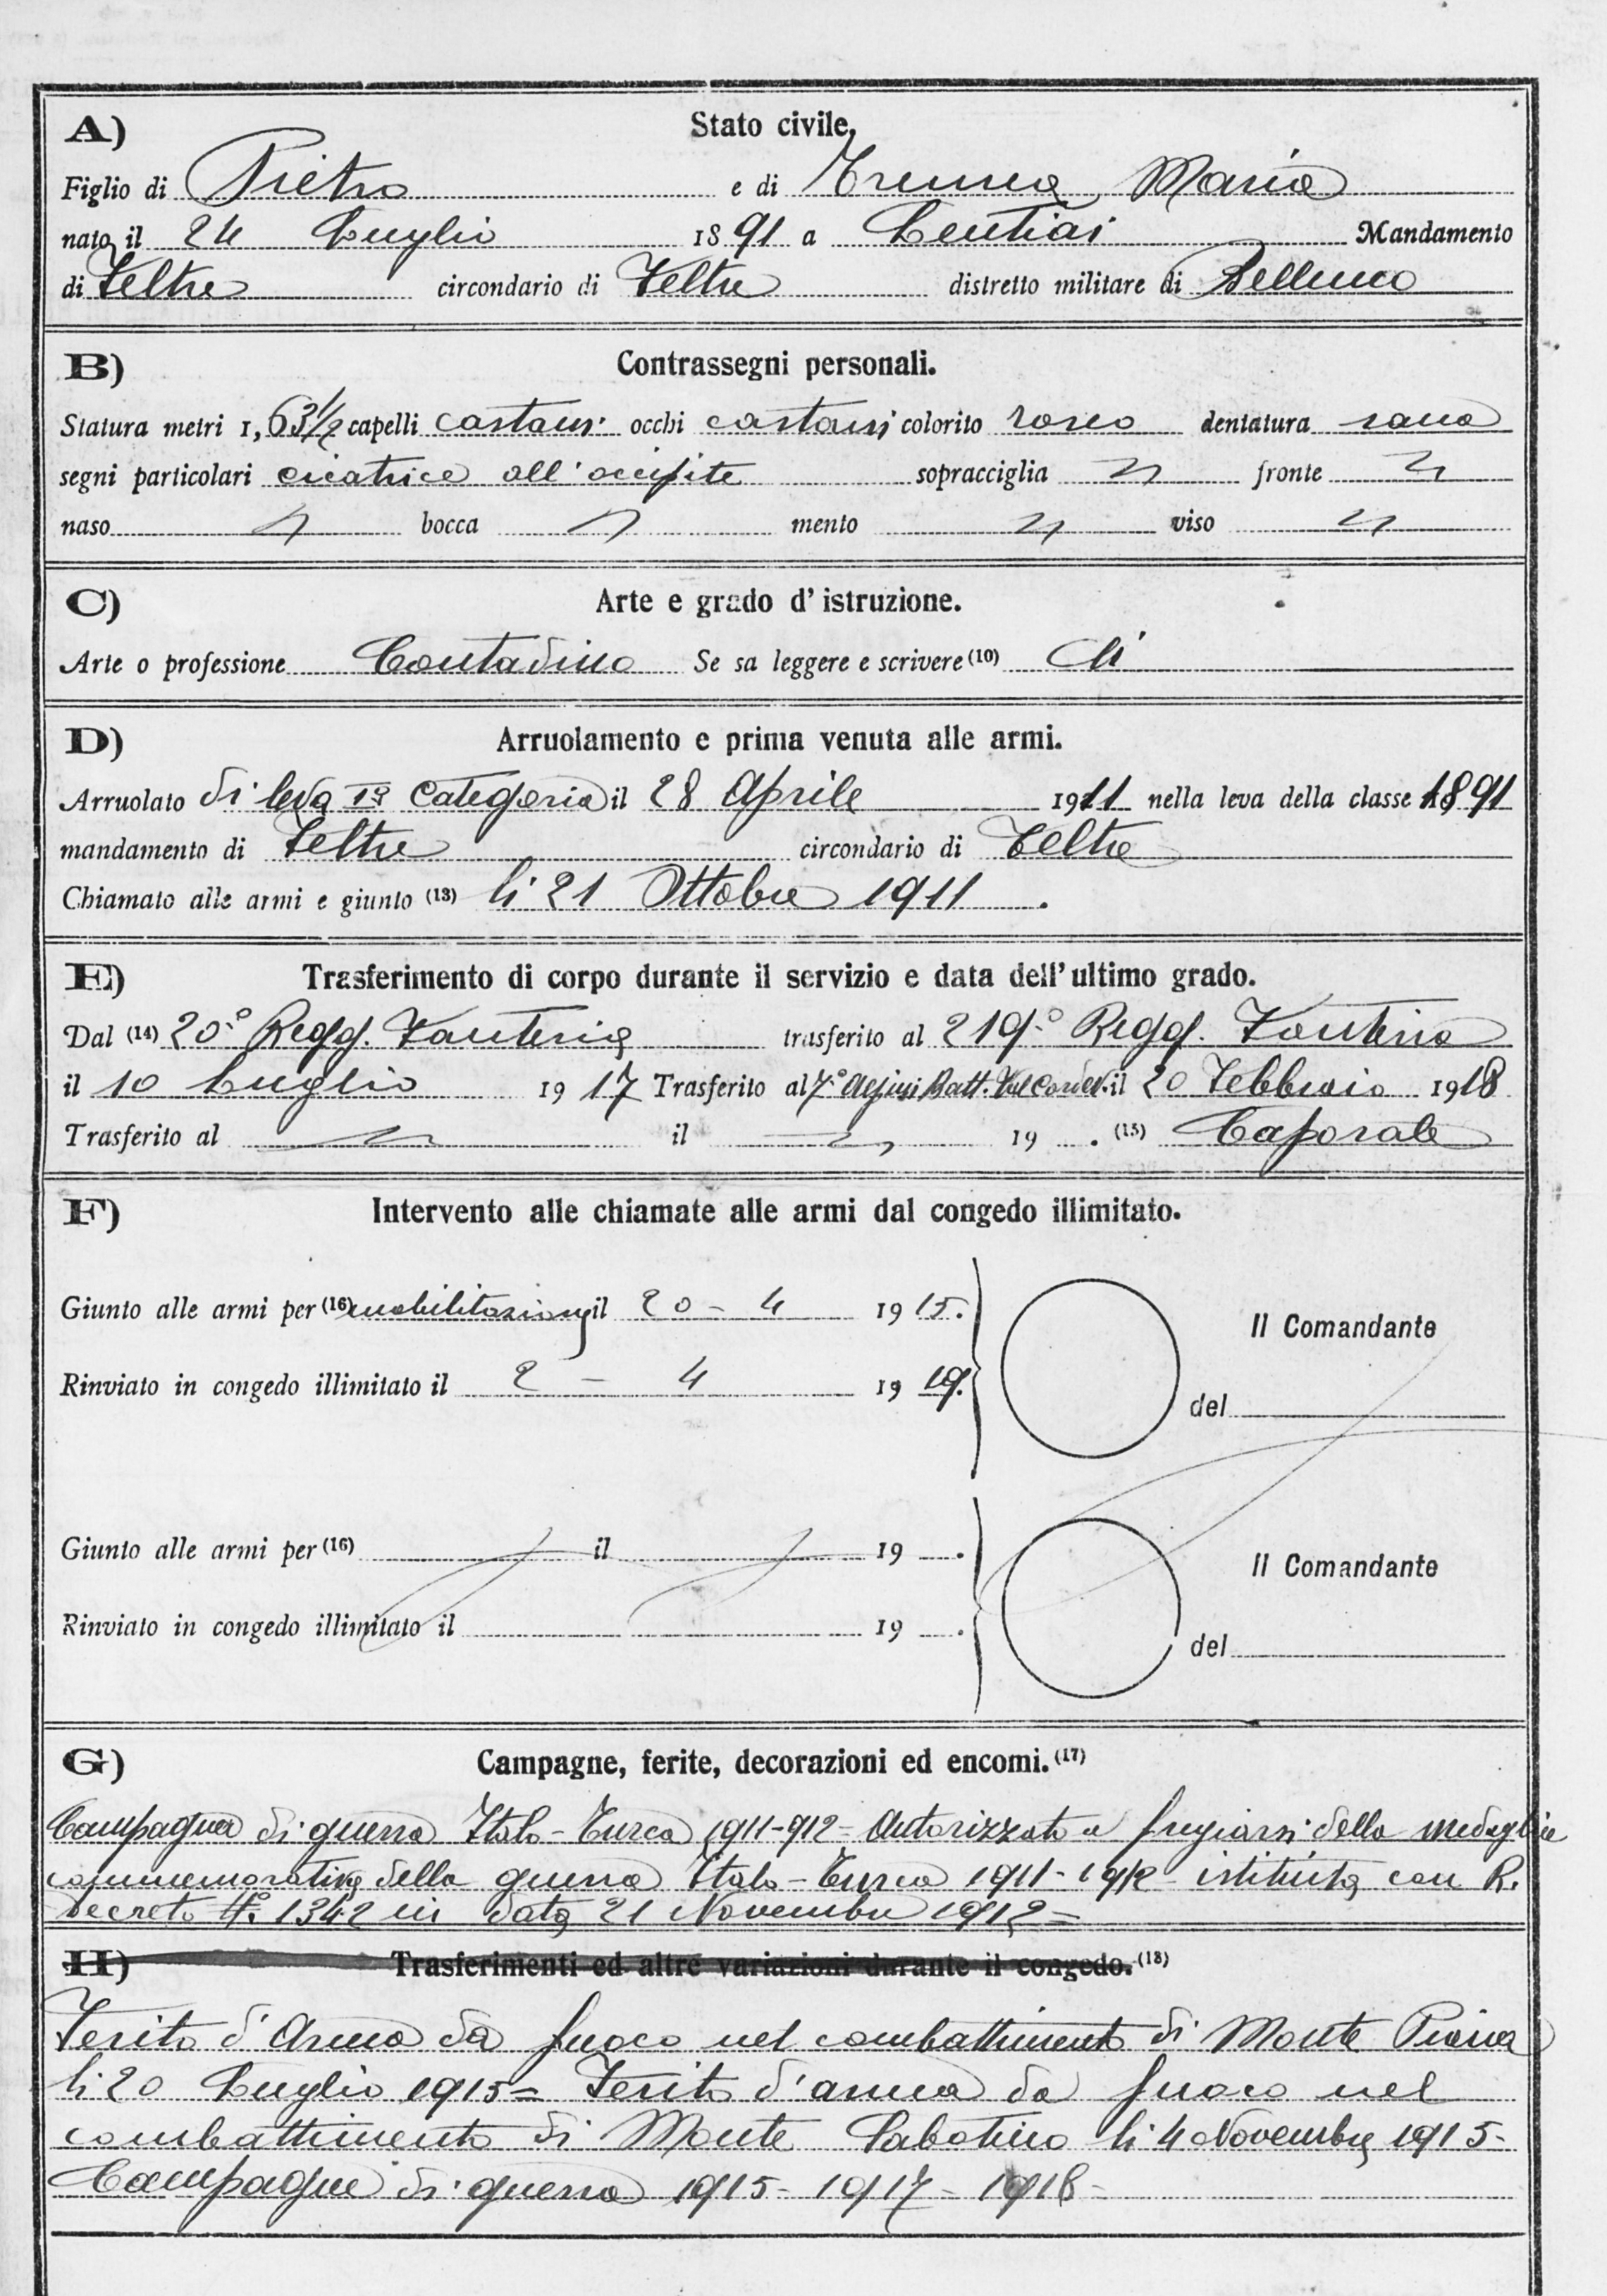 A) Stato civile,
Figlio di Pietro e di Tremea Maria
nato il 24 Luglio 1891 a Lentiai Mandamento
di Feltre circondario di Feltre distretto militare di Belluno
B) Contrassegni personali.
Statura metri 1,63½ capelli castani occhi castani colorito roseo dentatura sana
segni particolari cicatrice all'occipite sopracciglia fronte
naso bocca mento viso
C) Arte e grado d'istruzione.
Arte o professione Contadino Se sa leggere e scrivere (10) Si
D) Arruolamento e prima venuta alle armi.
Arruolato di leva Iª Categoria il 28 Aprile 1911 nella leva della classe 1891
mandamento di Feltre circondario di Feltre
Chiamato alle armi e giunto (13) li 21 Ottobre 1911.
E) Trasferimento di corpo durante il servizio e data dell'ultimo grado.
Dal (14) 20° Regg. Fanteria trasferito al 219° Regg. Fanteria
il 10 Luglio 1917 Trasferito al 7° Alpini Batt. Val Cordev. il 20 Febbraio 1918
Trasferito al il 19 . (15) Caporale
F) Intervento alle chiamate alle armi dal congedo illimitato.
Giunto alle armi per (16) mobilitazione il 20 - 4 1915.
Il Comandante
Rinviato in congedo illimitato il 2 - 4 1919.
del
Giunto alle armi per (16) il 19 .
Il Comandante
Rinviato in congedo illimitato il 19 .
del
G) Campagne, ferite, decorazioni ed encomi. (17)
Campagna di guerra Italo-Turca 1911-912= Autorizzato a fregiarsi della medaglia
commemorativa della guerra Italo-Turca 1911-1912 istituita con R.
Decreto N° 1342 in data 21 Novembre 1912=
H) Trasferimenti ed altre variazioni durante il congedo. (18)
Ferito d'Arma da fuoco nel combattimento di Monte Piana
li 20 Luglio 1915= Ferito d'arma da fuoco nel
combattimento di Monte Sabotino li 4 Novembre 1915-
Campagne di guerra 1915- 1917- 1918-